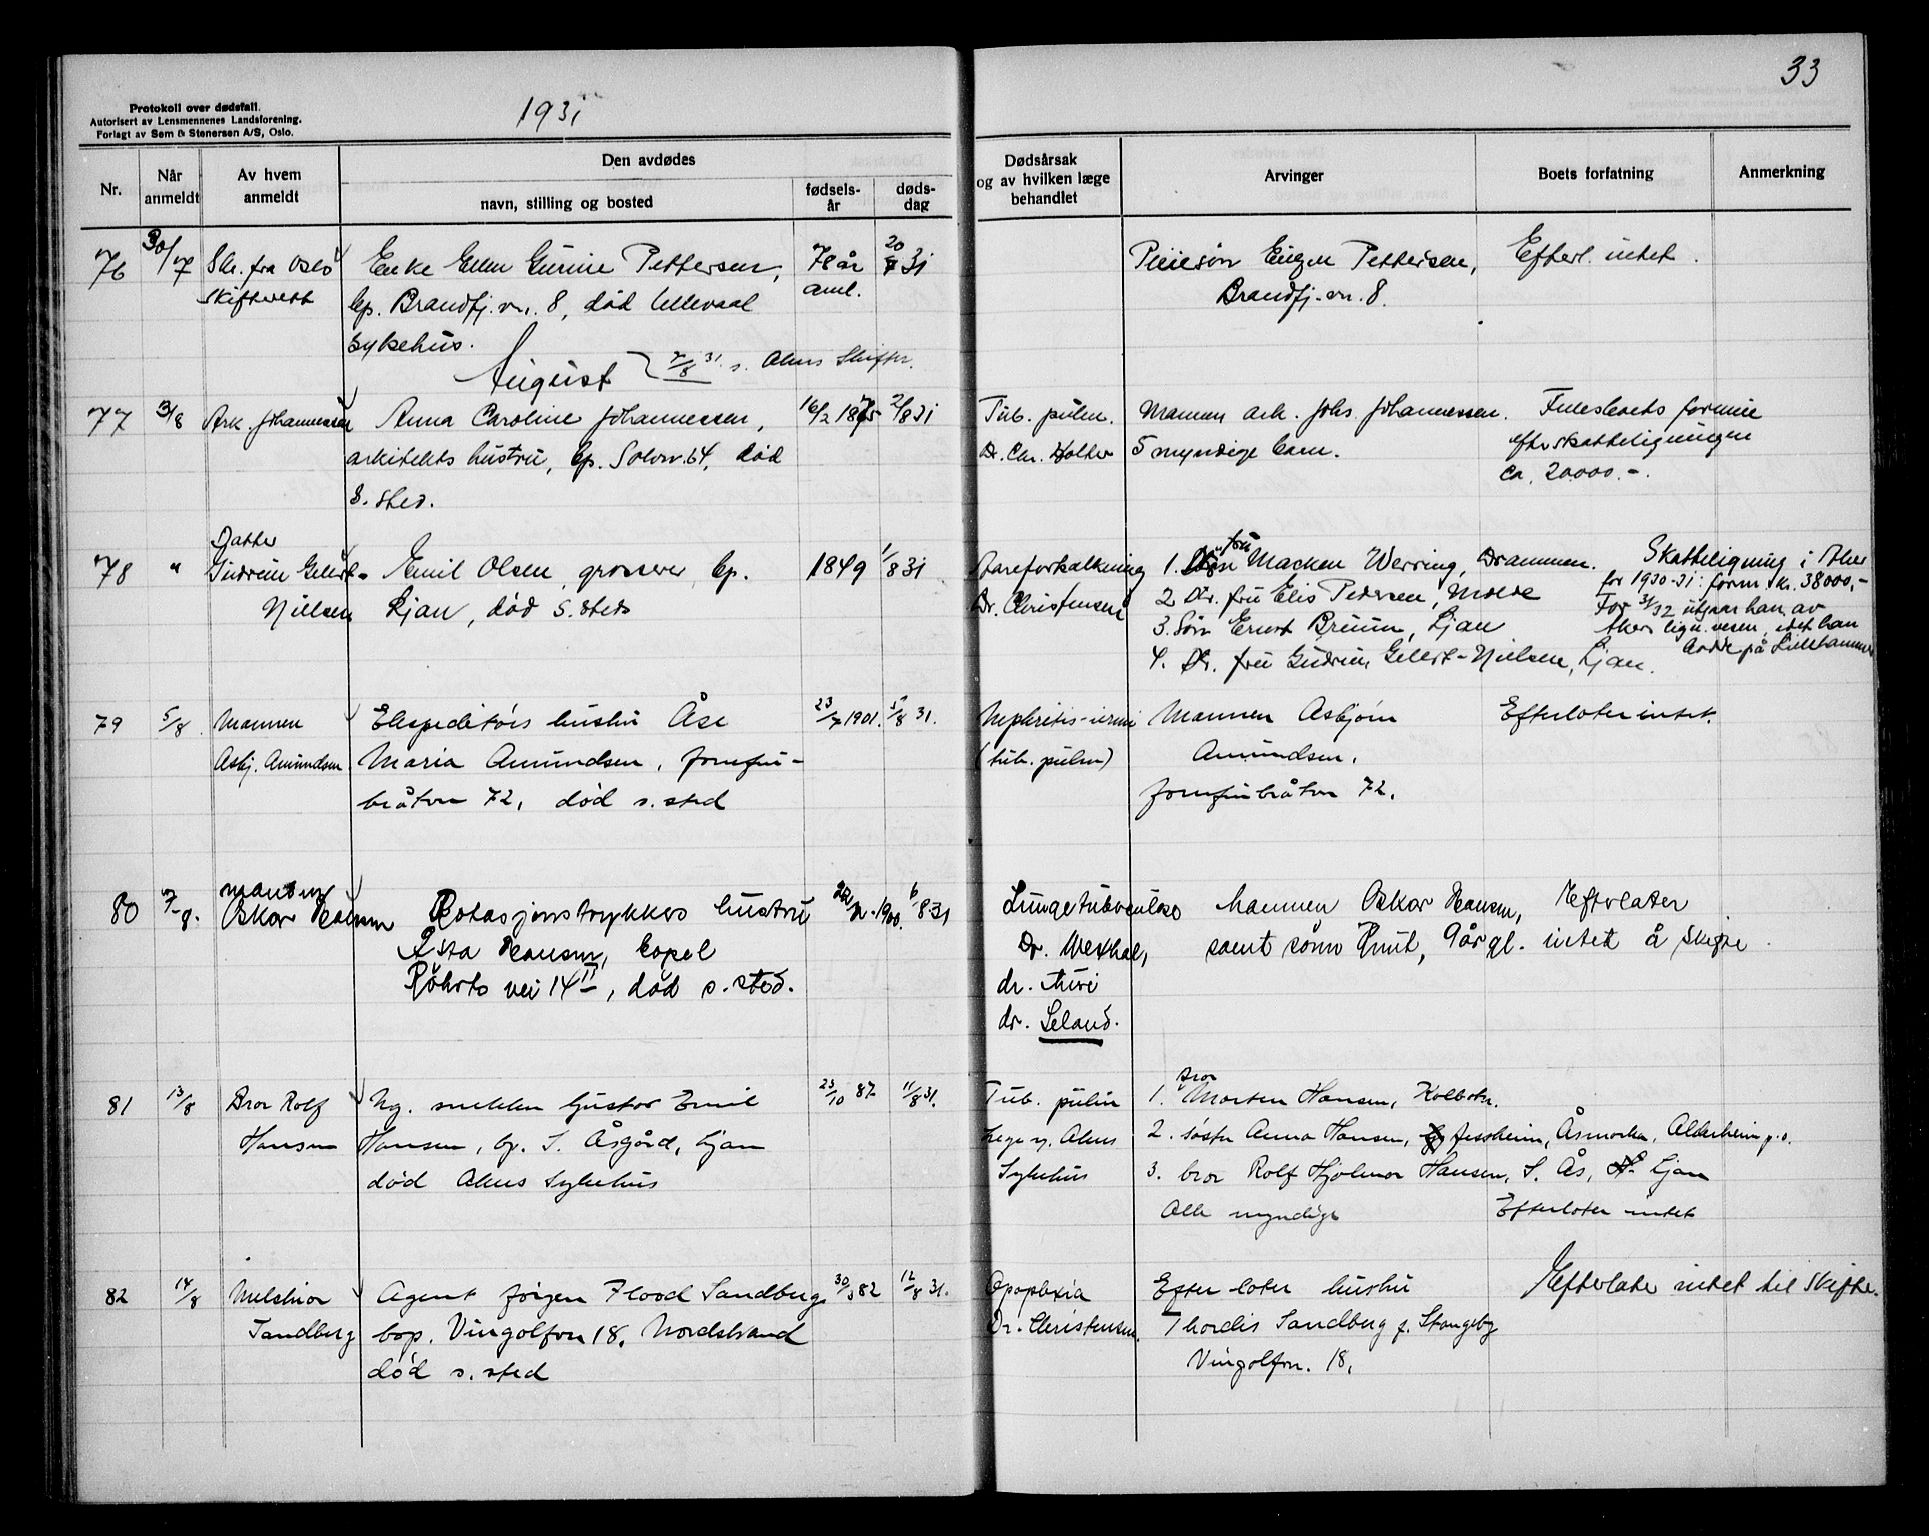 33
Protokoll over dødsfall.
Autorisert av Lensmennenes Landsforening.
Forlagt av Sem & Stenersen A/S, Oslo.
1931
Nr.
Når anmeldt
Av hvem anmeldt
Den avdødes
navn, stilling og bosted
fødsels-år
døds-dag
Dødsårsak
og av hvilken læge
behandlet
Arvinger
Boets forfatning
Anmerkning
76 30/7 Skr. fra Oslo
skifterett
Enke Ellen Gurine Pettersen,
bp. Brandfj.vn. 8, død Ullevaal
sykehus.
78 år
aml.
20/7 31
Pleiesøn Eugen Pettersen,
Brandfj.vn. 8.
Efterl. intet.
August
7/8 31. s. Akers Skifter.
77 3/8 Ark. Johannessen
Anna Caroline Johannessen,
arkitekts hustru, bp. Solvn. 64, død
s. sted.
16/2 1875
2/8 31
Tub. pulm.
Dr. Chr. Holter
Mannen ark. Johs. Johannessen.
5 myndige barn.
Fellesboets formue
efter skatteligningen
ca. 20000.-.
78 " Datter
Gudrun Gellert-
Nielsen
Emil Olsen, grosserer, bp.
Ljan, død s. sted
1849
1/8 31
Aareforkalkning
Dr. Christensen
1. fru Macken Werring, Drammen.
2 Dtr. fru Elis Pedersen, Molde
3. Søn Ernst Bruun, Ljan
4. Dtr. fru Gudrun Gellert-Nielsen, Ljan.
Skatteligning i Aker
for 1930-31: form. kr. 38000,-
For 31/32 utgaar han av
Akers lign.vesen, idet han
bodde på Lillehammer
79 5/8. Mannen
Asbj. Amundsen
Ekspeditørs hustru Åse
Maria Amundsen, Jomfru-
bråtvn 72, død s. sted
23/7 1901.
5/8 31.
Nephritis-uremi
(tub. pulm)
Mannen Asbjørn
Amundsen,
Jomfrubråtvn 72.
Efterlater intet.
80 7-8. manden
Oskar Hansen
Rotasjonstrykkers hustru
Ästa Hansen, bopel
Röhrts vei 14 II, død s. sted.
1900.
6/8 31
Lungetuberkulose
Dr. Westhal,
dr. Thiri
dr. Seland.
Mannen Oskar Hansen,
samt sönn Knut, 9 år gl.
Efterlater
intet å skifte.
81 13/8 Bror Rolf
Hansen
Ug. snekker Gustav Emil
Hansen, bp. S. Åsgård, Ljan
død Akers Sykehus
23/10 87
11/8 31.
Tub. pulm
Lege v. Akers
Sykehus
1. bror Morten Hansen, Kolbotn.
2. søster Anna Hansen, Jessheim, Åsmorka, Alderheim p.o.
3. bror Rolf Hjalmar Hansen, S. Ås, Ljan
Alle myndige
Efterlater intet
82 14/8 Melchior
Sandberg
Agent Jørgen Flood Sandberg
bop. Vingolfvn 18, Nordstrand
død s. sted
82
12/8 31.
Apoplexia
Dr. Christensen.
Efterlater hustru
Thordis Sandberg f. Stangeby
Vingolfvn. 18.
Efterlater intet til skifte.